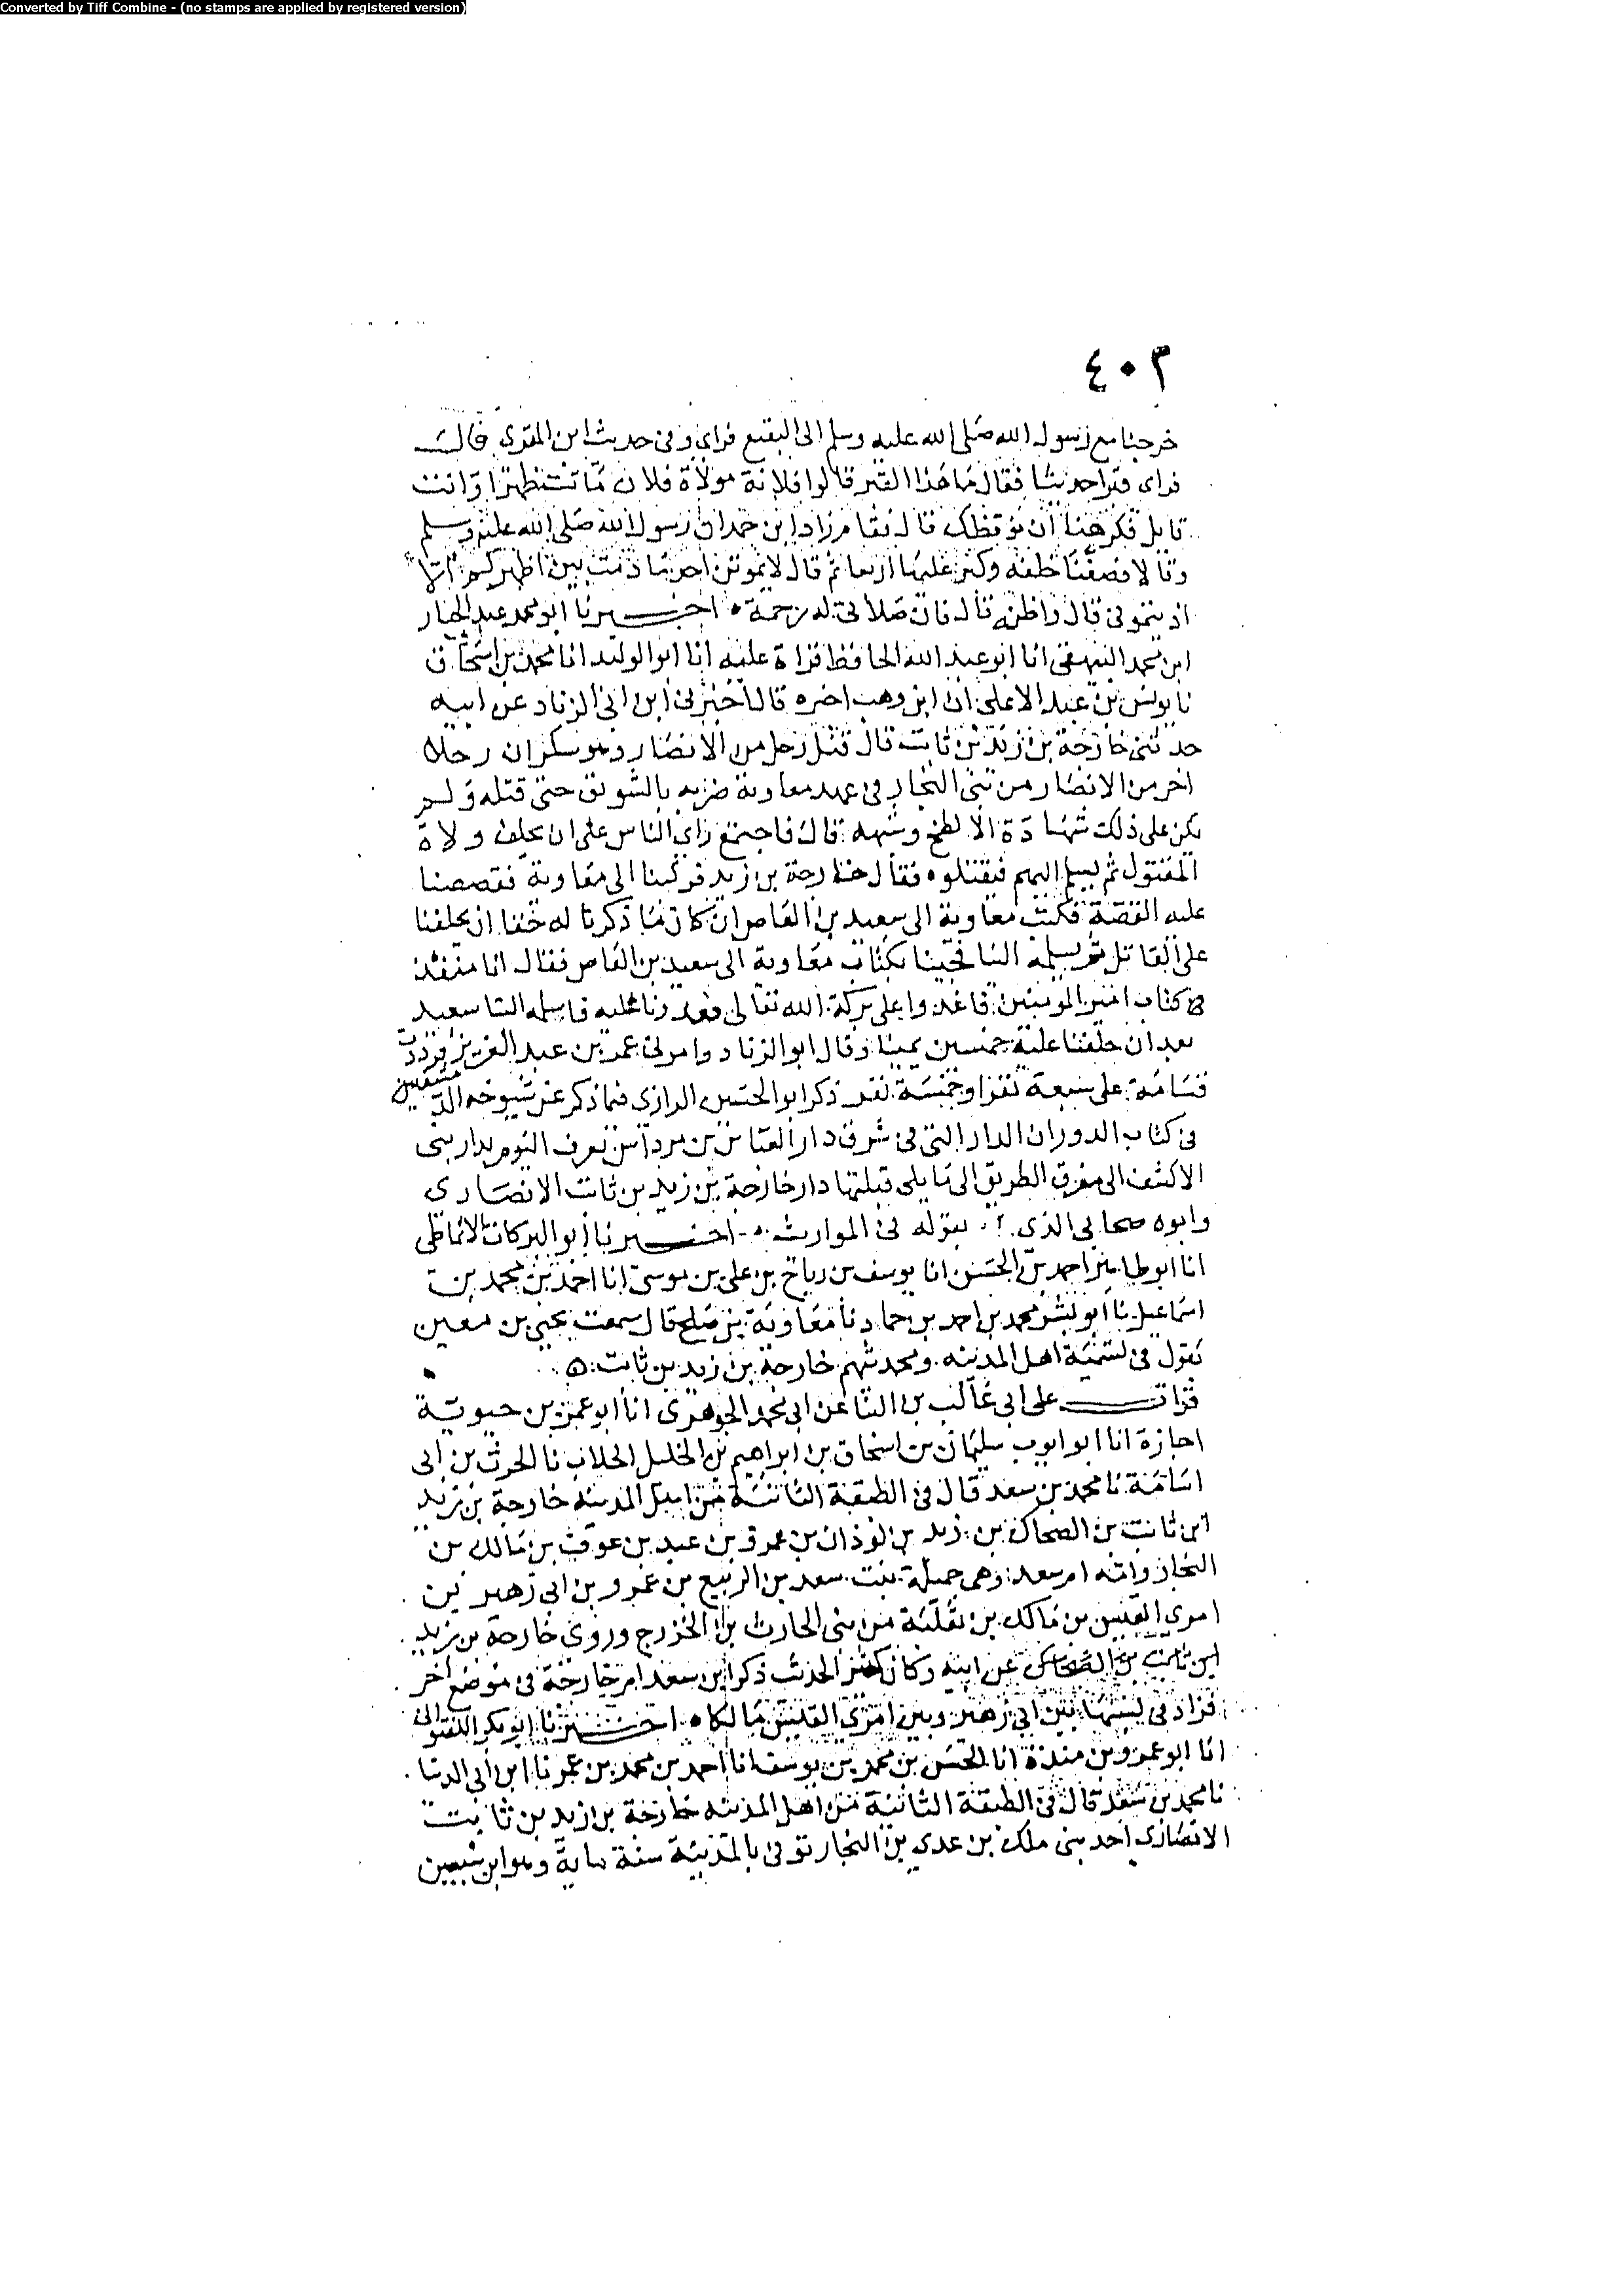 Converted by Tiff Combine - (no stamps are applied by registered version)
٤٠٣
خرجنا مع رسول الله صلى الله عليه وسلم الى البقيع فراى وفى حديث ابن المقرى قال
فراى قبرا حديثا فقال ما هذا القبر قالوا فلانة مولاة فلان ماتت ظهرا وانت
قايل فكرهنا ان نوقظك قال فقام زاد ابن حمدان رسول الله صلى الله عليه وسلم
وقالا فصفنا خلفه وكبر عليها اربعا ثم قال لا يموتن احد ما دمت بين اظهركم الا
اذنتمونى قال واظنه قال فان صلاتى له رحمة اخبرنا ابو محمد عبد الجبار
ابن محمد البيهقى انا ابو عبد الله الحافظ قراة عليه انا ابو الوليد انا محمد بن اسحاق
نا يونس بن عبد الاعلى ان ابن وهب اخبره قال اخبرنى ابن ابى الزناد عن ابيه
حدثنى خارجة بن زيد بن ثابت قال قتل رجل من الانصار وهو سكران رجلا
اخر من الانصار من بنى النجار فى عهد معاوية ضربه بالشوبق حتى قتله ولم
يكن على ذلك شهادة الا لطخ وشبهه قال فاجتمع راى الناس على ان يحلف ولاة
المقتول ثم يسلم اليهم فيقتلوه فقال خارجة بن زيد فركبنا الى معاوية فقصصنا
عليه القصة فكتب معاوية الى سعيد بن العاص ان كان ما ذكرنا له حقا ان يحلفنا
على القاتل ثم يسلمه الينا فجينا بكتاب معاوية الى سعيد بن العاص فقال انا منفذ
كتاب امير المومنين فاغدوا على بركة الله تعالى فغدونا عليه فاسلمه الينا سعيد
بعد ان حلفنا عليه خمسين يمينا وقال ابو الزناد وامر لى عمر بن عبد العزيز فرددت
قسامة على سبعة نفر او خمسة نفر ذكر ابو الحسين الرازى فيما ذكر عن شيوخه الدمشقيين
فى كتاب الدور ان الدار التى فى شرق دار العباس بن مرداس تعرف اليوم بدار بنى
الاكشف الى مفرق الطريق الى ما يلى قبلتها دار خارجة بن زيد بن ثابت الانصارى
وابوه صحابى الذى بقوله فى المواريث اخبرنا ابو البركات الانماطى
انا ابو طاهر احمد بن الحسن انا يوسف بن رباح بن على بن موسى انا احمد بن محمد بن
اسماعيل نا ابو بشر محمد بن احمد بن حماد نا معاوية بن صلح قال سمعت يحيى بن معين
يقول فى تسمية اهل المدينه ومحدثيهم خارجة بن زيد بن ثابت
قرات على ابى غالب بن البنا عن ابى محمد الجوهرى انا ابو عمر بن حيوية
اجازة انا ابو ايوب سليمان بن اسحاق بن ابراهيم بن الخليل الجلاب نا الحرث بن ابى
اسامة نا محمد بن سعد قال فى الطبقة الثانية من اهل المدينه خارجة بن زيد
ابن ثابت بن الضحاك بن زيد بن لوذان بن عمرو بن عبد بن عوف بن مالك بن
النجار وامه ام سعد وهى جميلة بنت سعد بن الربيع بن عمرو بن ابى زهير بن
امرى القيس بن مالك بن ثعلبة من بنى الحارث بن الخزرج وروى خارجة بن زيد
ابن ثابت بن الضحاك عن ابيه وكان كثير الحديث ذكر ابن سعد ام خارجة فى موضع اخر
فزاد فى نسبها بين ابى زهير وبين امرى القيس مالكا اخبرنا ابو بكر اللفتوانى
انا ابو عمرو بن مندة انا الحسن بن محمد بن يوسف انا احمد بن محمد بن عمر نا ابن ابى الدنيا
نا محمد بن سعد قال فى الطبقة الثانية من اهل المدينه خارجة بن زيد بن ثابت
الانصارى احد بنى ملك بن عدى بن النجار توفى بالمدينة سنة ماية وهو ابن سبعين